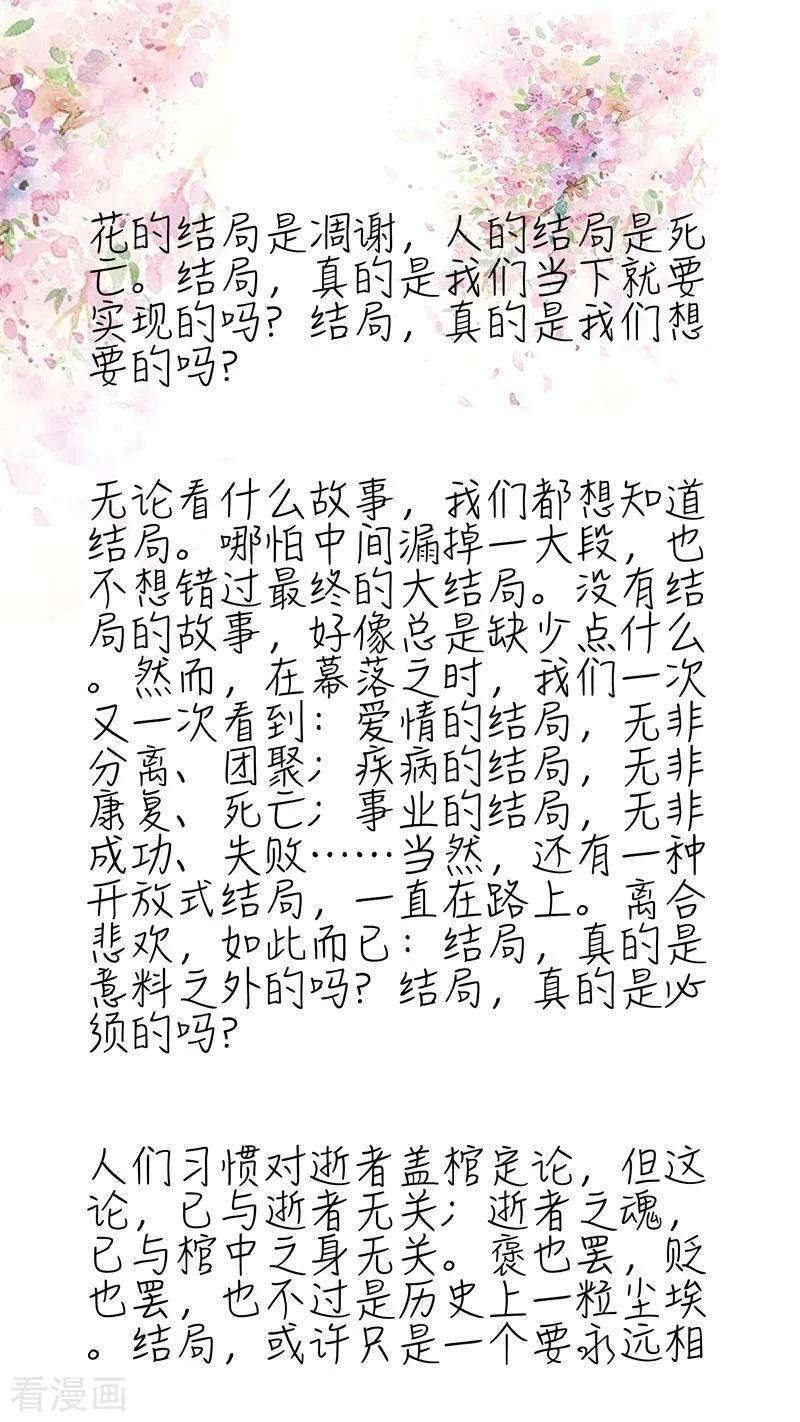 花的结局是凋谢，人的结局是死
亡。结局，真的是我们当下就要
实现的吗？结局，真的是我们想
要的吗？
无论看什么故事，我们都想知道
结局。哪怕中间漏掉一大段，也
不想错过最终的大结局。没有结
局的故事，好像总是缺少点什么
。然而，在幕落之时，我们一次
又一次看到：爱情的结局，无非
分离、团聚；疾病的结局，无非
康复、死亡；事业的结局，无非
成功、失败……当然，还有一种
开放式结局，一直在路上。离合
悲欢，如此而已：结局，真的是
意料之外的吗？结局，真的是必
须的吗？
人们习惯对逝者盖棺定论，但这
论，已与逝者无关；逝者之魂，
已与棺中之身无关。褒也罢，贬
也罢，也不过是历史上一粒尘埃
。结局，或许只是一个要永远相
看漫画